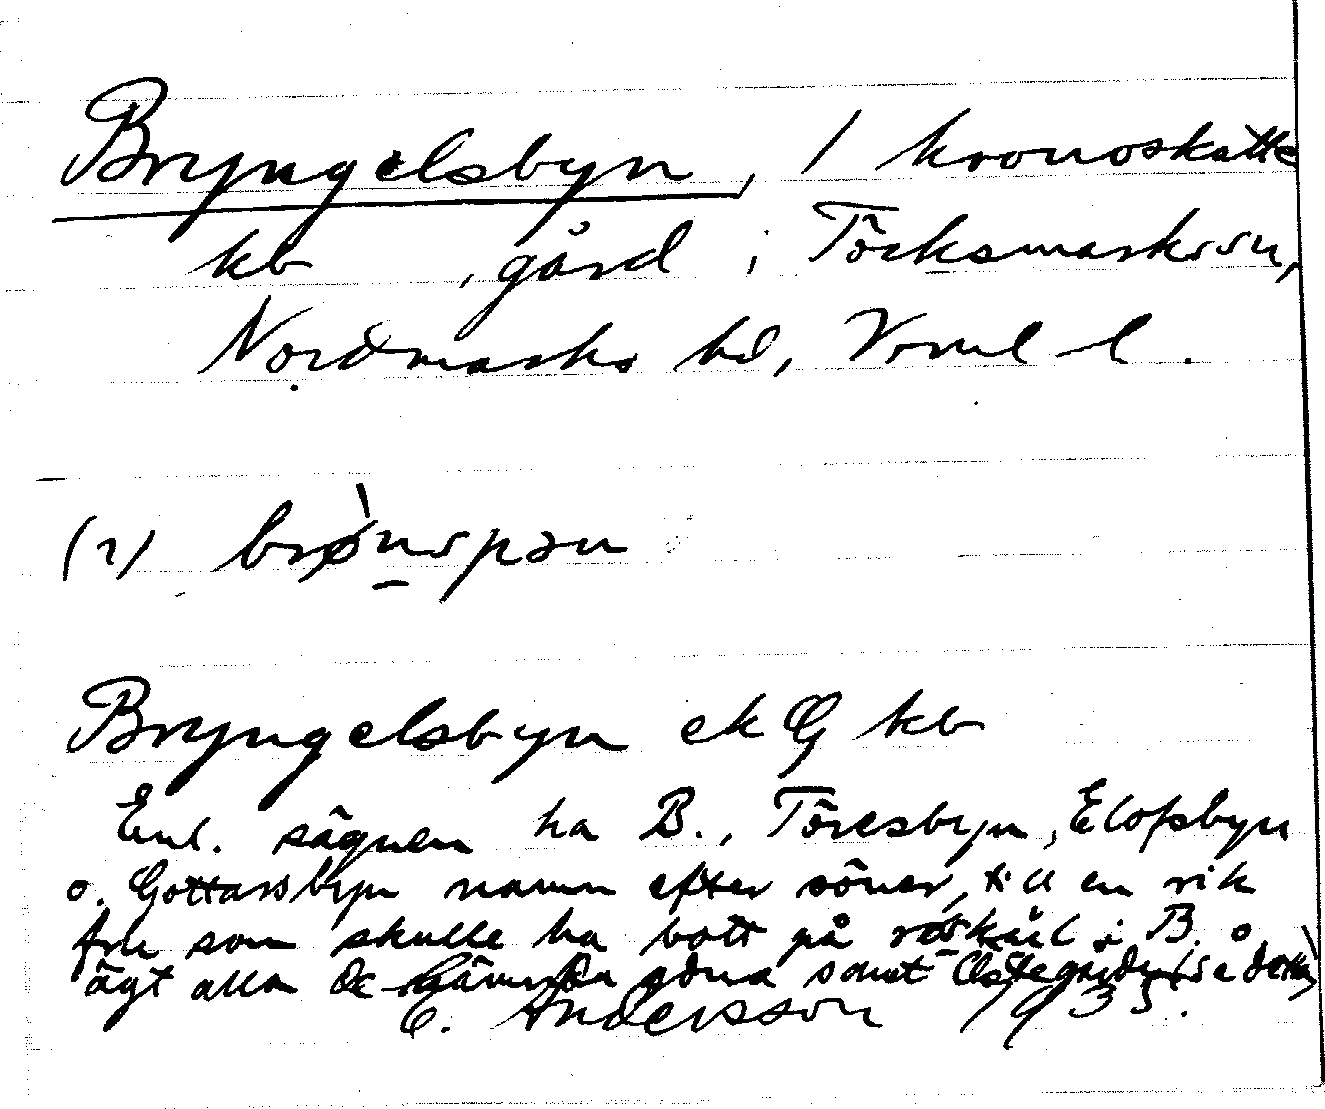 Bryngelsbyn, 1 kronoskatte
kb , gård i Töcksmarks sn,
Nordmarks hd, Vrml l.
(2) brø̀nspən
Bryngelsbyn ek G kb
Enl. sägnen ha B., Töresbyn, Elofsbyn
o. Gottarsbyn namn efter söner till en rik
fru som skulle ha bott på i B. o
ägt alla de gdna samt (se detta)
E. Andersson 1935.